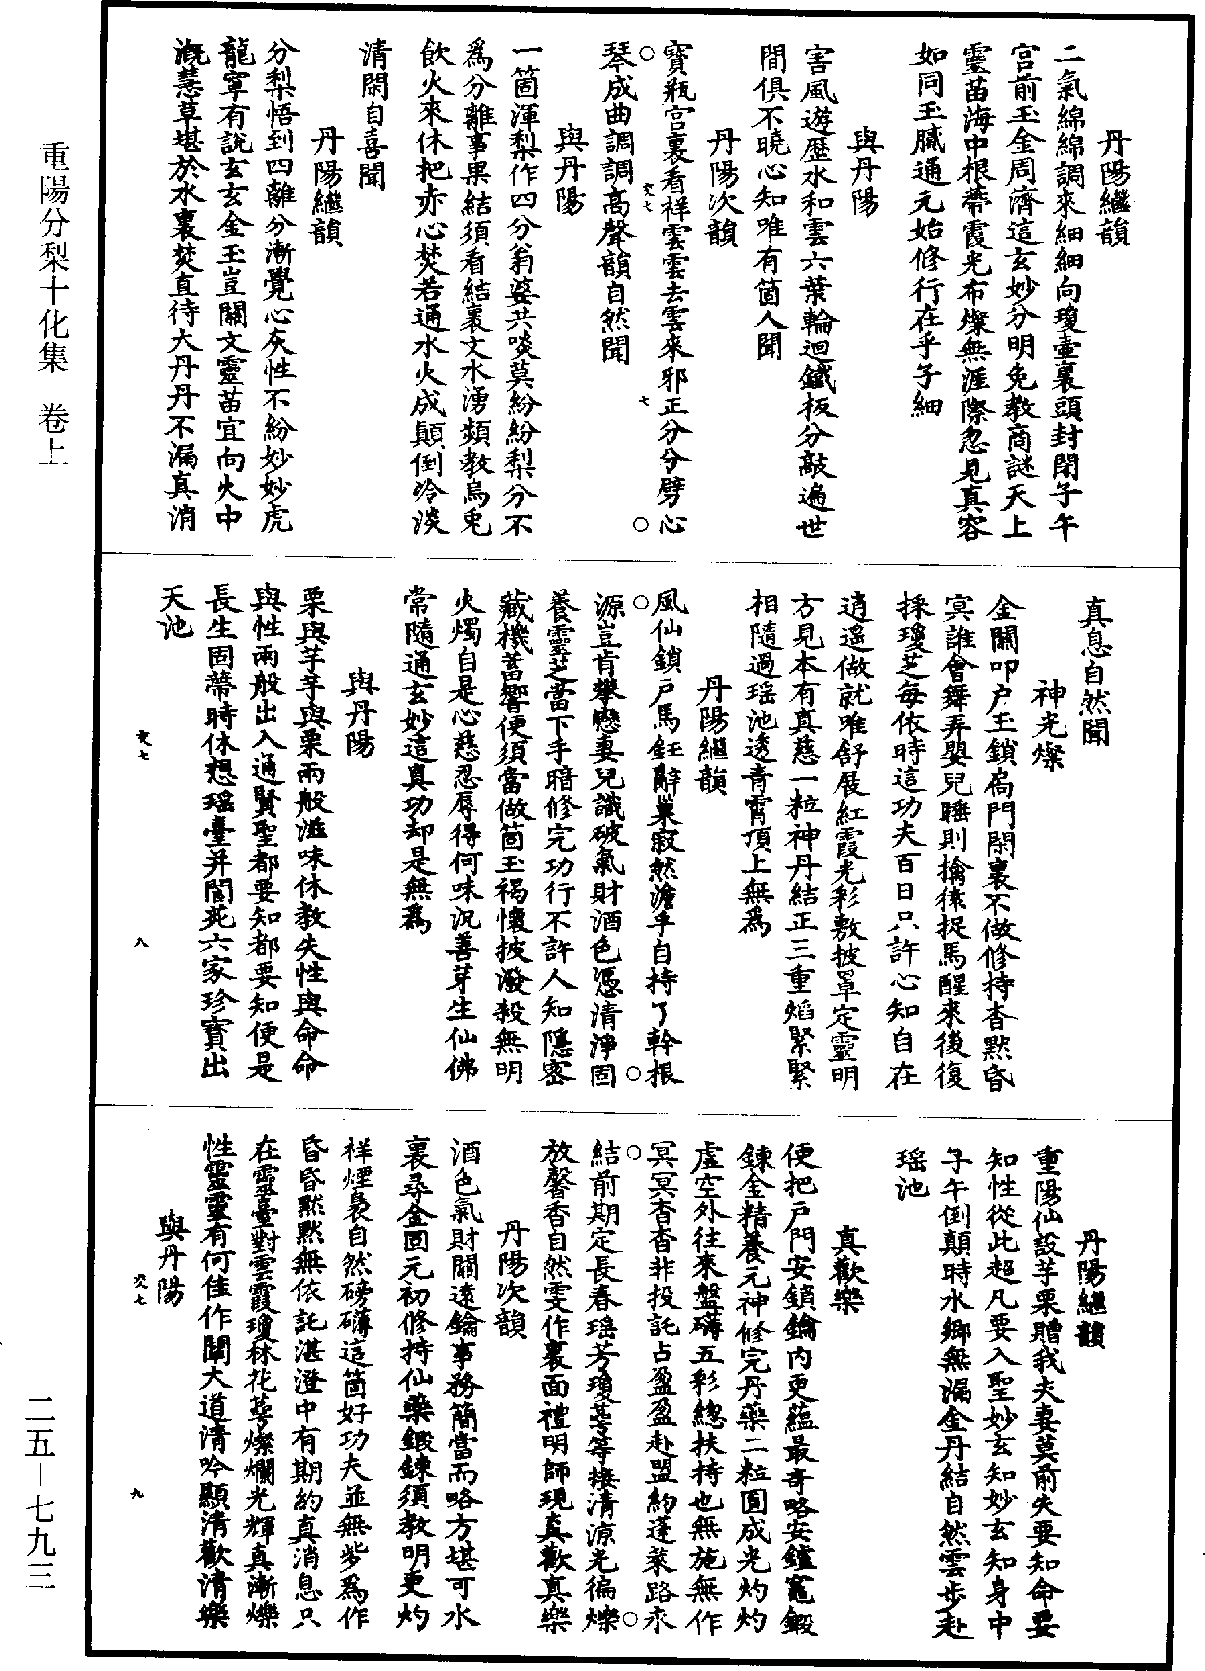 丹陽繼韻
二氣綿綿調來細細向瓊壷裏頭封閉子午
宫前玉金周濟這玄妙分明免教商謎天上
靈苗海中根蔕霞光布燦無涯際忽見真容
如同玉膩通元始修行在乎子細
與丹陽
害風遊歷水和雲六葉輪迴鐵板分敲遍世
間俱不曉心知唯有箇人聞
丹陽次韻
寶瓶宫裏看祥雲雲去雲來邪正分分劈心
琴成曲調調高聲韻自然聞
與丹陽
一箇渾梨作四分翁婆共啖莫紛紛梨分不
爲分離事果結須看結裏文水湧頻教烏兎
飲火來休把赤心焚若通水火成顛倒冷淡
清閑自喜聞
丹陽繼韻
分梨悟到四離分漸覺心灰性不紛妙妙虎
龍寧有說玄玄金玉豈關文靈苗宜向火中
溉慧草堪於水裏焚直待大丹丹不漏真消
真息自然聞
神光燦
金關叩户玉鎖扄門閑裏不做修持杳黙昏
冥誰會舞弄嬰兒睡則擒猿捉馬醒來後復
採瓊芝每依時這功夫百日只許心知自在
逍遥做就唯舒展紅霞光彩敷披罩定靈明
方見本有真慈一粒神丹結正三重焰緊緊
相隨過瑶池透青霄頂上無爲
丹陽繼韻
風仙鎖户馬鈺辭巢寂然澹乎自持了幹根
源豈肯攀戀妻兒識破氣財酒色憑清淨固
養靈芝當下手暗修完功行不許人知隱密
藏機蓄響便須當做箇玉褐懷披潑殺無明
火燭自是心慈忍辱得何味況善芽生仙佛
常隨通玄妙這真功却是無爲
與丹陽
栗與芋芋與栗兩般滋味休教失性與命命
與性兩般出入通賢聖都要知都要知便是
長生固蔕時休想瑶臺并閬苑六家珍寶出
天池
丹陽繼韻
重陽仙設芋栗贈我夫妻莫前失要知命要
知性從此超凡要入聖妙玄知妙玄知身中
子午倒顛時水鄉無漏金丹結自然雲步赴
瑶池
真歡樂
便把户門安鎖鑰内更藴最奇略安鑪竈鍛
鍊金精養元神修完丹藥二粒圓成光灼灼
虚空外往來盤礴五彩總扶持也無施無作
冥冥杳杳非投託占盈盈赴盟約蓬萊路永
結前期定長春瑶芳瓊萼等接清涼光徧爍
放馨香自然雯作裏面禮明師現真歡真樂
丹陽次韻
酒色氣財關遠鑰事務簡當而略方堪可水
裏尋金固元初修持仙藥鍛鍊須教明更灼
祥煙裊自然磅礴這箇好功夫並無些爲作
昏昏黙黙無依託湛澄中有期約真消息只
在靈臺對雲霞瓊林花萼燦爛光輝真漸爍
性靈靈有何佳作闡大道清吟顯清歡清樂
與丹陽
重陽分梨十化集　卷上
二五—七九三